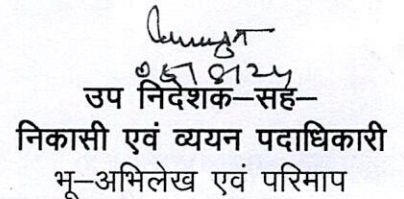 उप निदेशक–सह–
निकासी एवं व्ययन पदाधिकारी
भू–अभिलेख एवं परिमाप